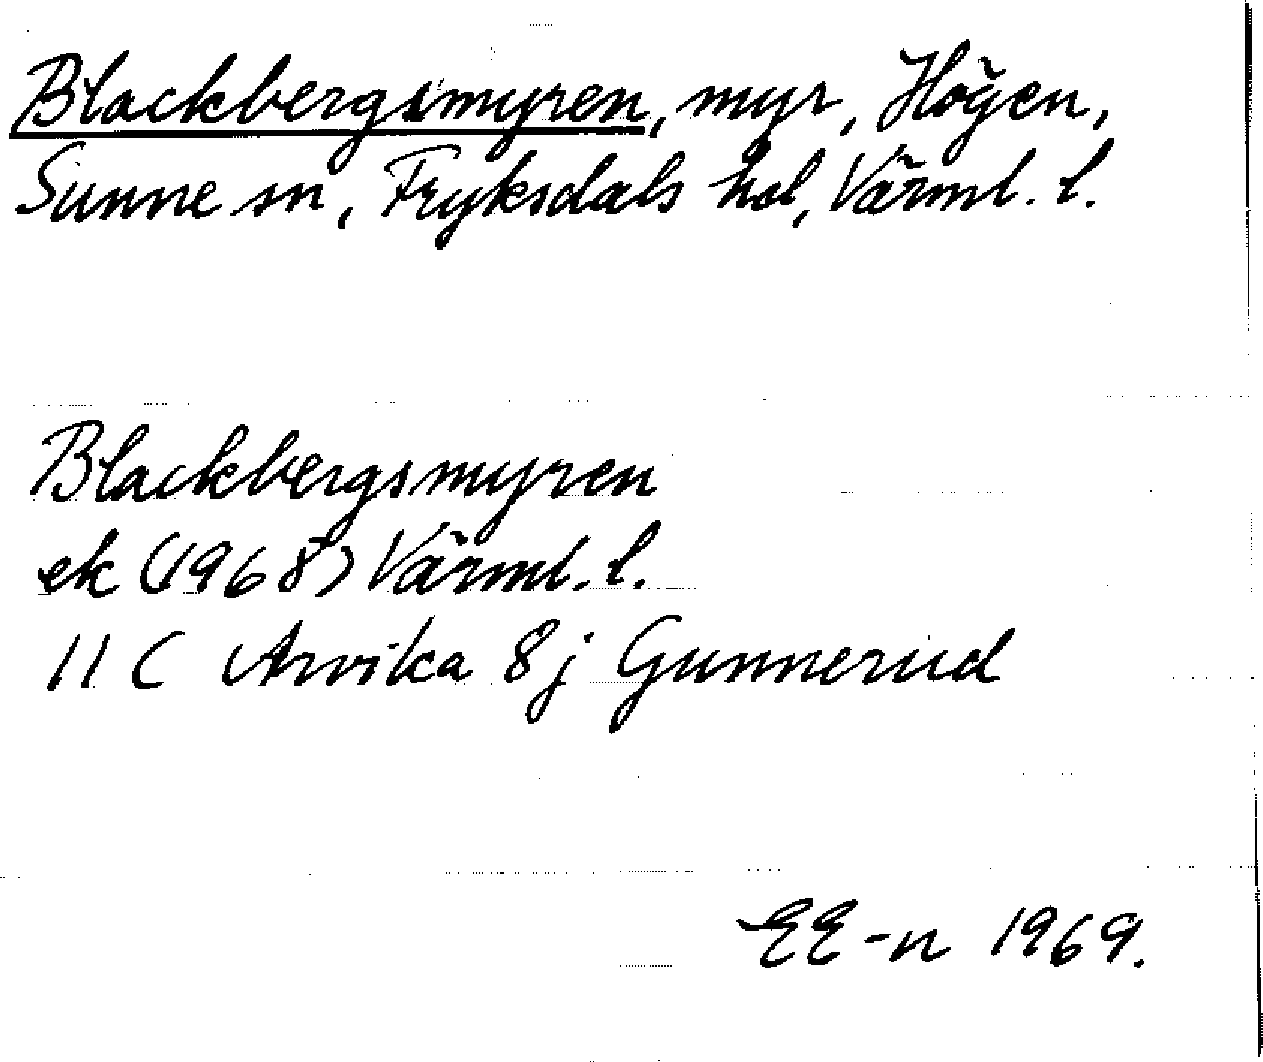 Blackbergsmyren, myr, Högen,
Sunne sn, Fryksdals hd, Värml. l.
Blackbergsmyren
ek (1968) Värml. l.
11 C Arvika 8j Gunnerud
EE-n 1969.